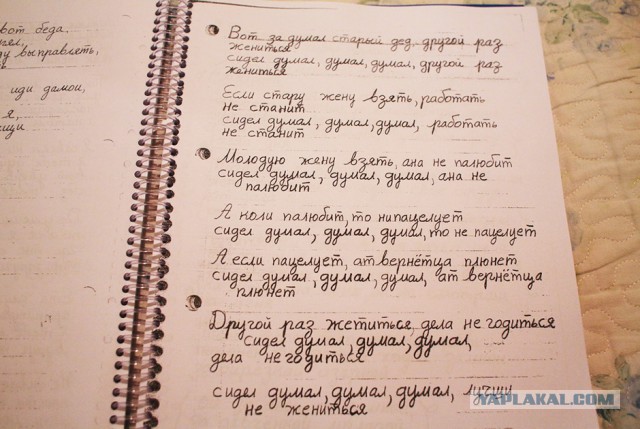 вот беда.
ду выправлять,
иди дамои,
я,
Вот за думал старый дед, другой раз
жениться
сидел думал, думал, думал, другой раз
жениться
Если стару жену взять, работать
не станит
сидел думал, думал, думал, работать
не станит
Молодую жену взять, ана не палюбит
сидел думал, думал, думал, ана не
палюбит
А коли палюбит, то нипацелует
сидел думал, думал, думал, то не пацелует
А если пацелует, ат вернётца плюнет
сидел думал, думал, думал, ат вернётца
плюнет
Другой раз жетиться дела не годиться
сидел думал, думал, думал,
дела не годиться
сидел думал, думал, думал, лучши
не жениться
YAPLAKAL.COM